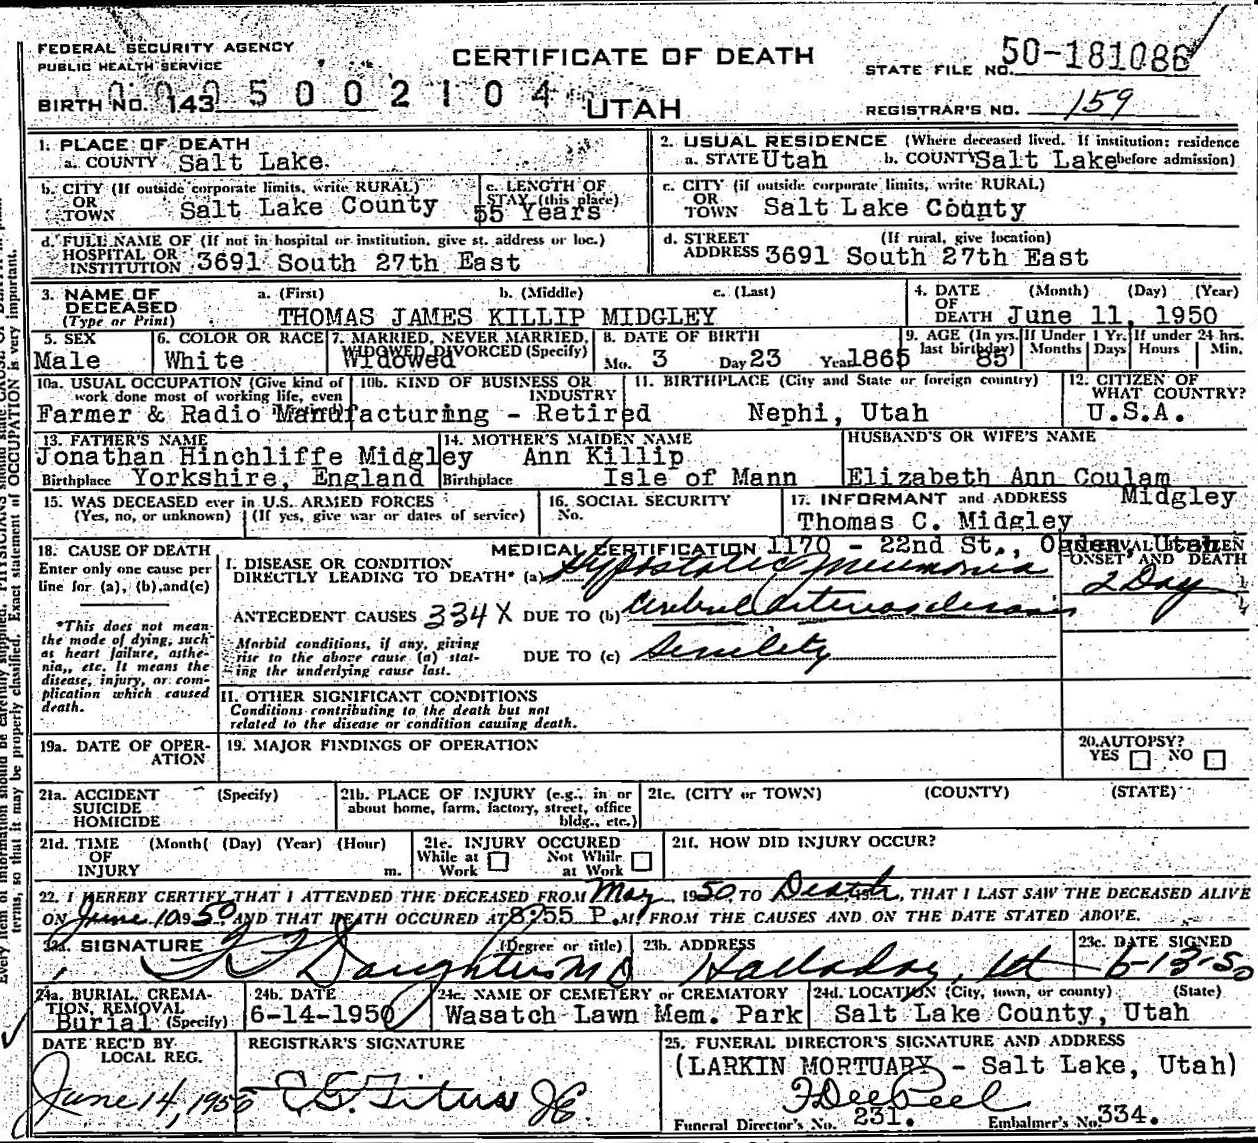 FEDERAL SECURITY AGENCY
PUBLIC HEALTH SERVICE
CERTIFICATE OF DEATH
UTAH
STATE FILE NO. 50-181086
BIRTH NO. 143
0005002104
REGISTRAR'S NO. 159
1. PLACE OF DEATH
a. COUNTY Salt Lake
2. USUAL RESIDENCE (Where deceased lived. If institution: residence before admission)
a. STATE Utah b. COUNTY Salt Lake
b. CITY (If outside corporate limits, write RURAL) OR TOWN Salt Lake County
c. LENGTH OF STAY (this place) 55 Years
c. CITY (if outside corporate limits, write RURAL) OR TOWN Salt Lake County
d. FULL NAME OF (If not in hospital or institution, give st. address or loc.) HOSPITAL OR INSTITUTION 3691 South 27th East
d. STREET ADDRESS (If rural, give location) 3691 South 27th East
3. NAME OF DECEASED (Type or Print) a. (First) b. (Middle) c. (Last)
THOMAS JAMES KILLIP MIDGLEY
4. DATE OF DEATH (Month) (Day) (Year) June 11, 1950
5. SEX Male
6. COLOR OR RACE White
7. MARRIED, NEVER MARRIED, WIDOWED, DIVORCED (Specify) Widowed
8. DATE OF BIRTH Mo. 3 Day 23 Year 1865
9. AGE (In yrs. last birthday) 85 If Under 1 Yr. Months Days If under 24 hrs. Hours Min.
10a. USUAL OCCUPATION (Give kind of work done most of working life, even
10b. KIND OF BUSINESS OR INDUSTRY
Farmer & Radio Manufacturing - Retired
11. BIRTHPLACE (City and State or foreign country) Nephi, Utah
12. CITIZEN OF WHAT COUNTRY? U.S.A.
13. FATHER'S NAME Jonathan Hinchliffe Midgley
Birthplace Yorkshire, England
14. MOTHER'S MAIDEN NAME Ann Killip
Birthplace Isle of Mann
HUSBAND'S OR WIFE'S NAME Elizabeth Ann Coulam Midgley
15. WAS DECEASED ever in U.S. ARMED FORCES (Yes, no, or unknown) (If yes, give war or dates of service)
16. SOCIAL SECURITY No.
17. INFORMANT and ADDRESS Thomas C. Midgley
1170 - 22nd St., Ogden, Utah
18. CAUSE OF DEATH
Enter only one cause per line for (a), (b), and (c)
*This does not mean the mode of dying, such as heart failure, asthenia, etc. It means the disease, injury, or complication which caused death.
MEDICAL CERTIFICATION
INTERVAL BETWEEN ONSET AND DEATH
I. DISEASE OR CONDITION DIRECTLY LEADING TO DEATH* (a) Hypostatic Pneumonia 2 Day
ANTECEDENT CAUSES 334X DUE TO (b) Cerebral Arteriosclerosis
Morbid conditions, if any, giving rise to the above cause (a) stating the underlying cause last.
DUE TO (c) Senility
II. OTHER SIGNIFICANT CONDITIONS
Conditions contributing to the death but not related to the disease or condition causing death.
19a. DATE OF OPERATION
19. MAJOR FINDINGS OF OPERATION
20. AUTOPSY? YES NO
21a. ACCIDENT SUICIDE HOMICIDE (Specify)
21b. PLACE OF INJURY (e.g., in or about home, farm, factory, street, office bldg., etc.)
21c. (CITY or TOWN) (COUNTY) (STATE)
21d. TIME OF INJURY (Month( (Day) (Year) (Hour) m.
21e. INJURY OCCURED While at Work Not While at Work
21f. HOW DID INJURY OCCUR?
22. I HEREBY CERTIFY THAT I ATTENDED THE DECEASED FROM May, 1950, TO Death, 19, THAT I LAST SAW THE DECEASED ALIVE
ON June 10 1950 AND THAT DEATH OCCURED AT 8:55 P.M. FROM THE CAUSES AND ON THE DATE STATED ABOVE.
23a. SIGNATURE (Degree or title) Daughters MD
23b. ADDRESS Holladay, Ut
23c. DATE SIGNED 6-13-50
24a. BURIAL, CREMATION, REMOVAL (Specify) Burial
24b. DATE 6-14-1950
24c. NAME OF CEMETERY or CREMATORY Wasatch Lawn Mem. Park
24d. LOCATION (City, town, or county) (State) Salt Lake County, Utah
DATE REC'D BY LOCAL REG. June 14, 1950
REGISTRAR'S SIGNATURE
25. FUNERAL DIRECTOR'S SIGNATURE AND ADDRESS
(LARKIN MORTUARY - Salt Lake, Utah)
Funeral Director's No. 231. Embalmer's No. 334.